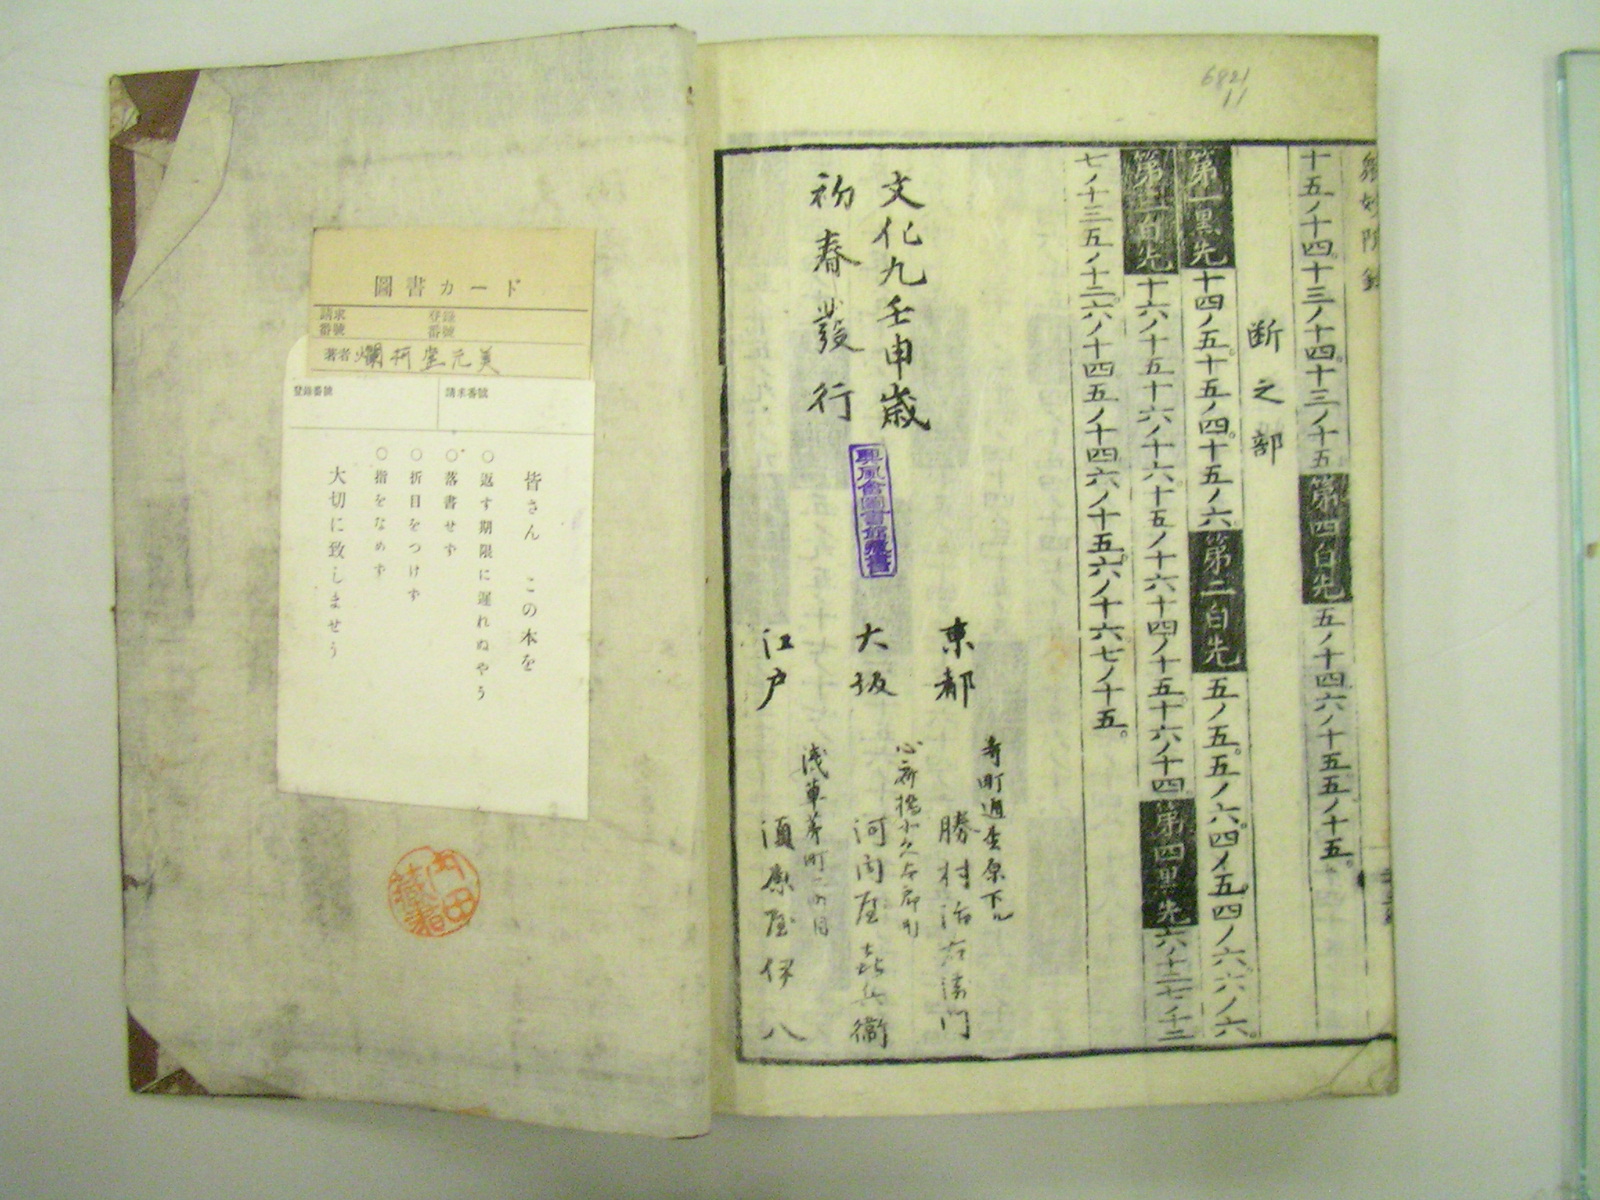 6821
11
十五ノ十四。十三ノ十四。十三ノ十五第四白先五ノ十四六ノ十五五ノ十五。
断之部
第一黒先十四ノ五。十五ノ四。十五ノ六第二白先五ノ五。五ノ六。四ノ五。四ノ六。六ノ六。
第三白先十六ノ十五十六ノ十六。十五ノ十六十四ノ十五。十六ノ十四第四黒先六ノ十二七ノ十二
七ノ十三五ノ十二。六ノ十四五ノ十四六ノ十五。六ノ十六七ノ十五。
文化九壬申歳
初春發行
興風會圖書館藏書
東都
勝村治右衛門
大坂
河内屋喜兵衞
江戸
浅草茅町二丁目
須原屋伊八
圖書カード
請求番號
登録番號
著者 爛柯堂元美
登錄番號
請求番號
皆さん この本を
○返す期限に遅れぬやう
○落書せず
○折目をつけず
○指をなめず
大切に致しませう